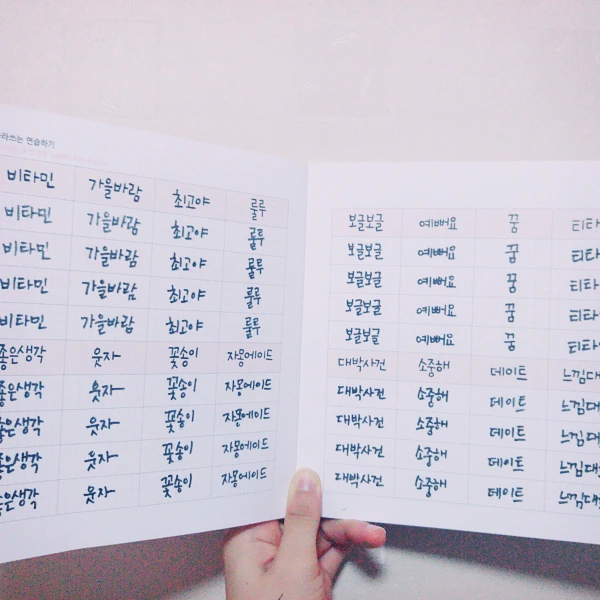 쓰는 연습하기
비타민 가을바람 최고야 룰루
비타민 가을바람 최고야 룰루
비타민 가을바람 최고야 룰루
비타민 가을바람 최고야 룰루
비타민 가을바람 최고야 룰루
좋은생각 웃자 꽃송이 자몽에이드
좋은생각 웃자 꽃송이 자몽에이드
좋은생각 웃자 꽃송이 자몽에이드
좋은생각 웃자 꽃송이 자몽에이드
좋은생각 웃자 꽃송이 자몽에이드
보글보글 예뻐요 꿈 티타
보글보글 예뻐요 꿈 티타
보글보글 예뻐요 꿈 티타
보글보글 예뻐요 꿈 티타
보글보글 예뻐요 꿈 티타
대박사건 소중해 데이트 느낌대
대박사건 소중해 데이트 느낌대
대박사건 소중해 데이트 느낌대
대박사건 소중해 데이트 느낌대
대박사건 소중해 데이트 느낌대